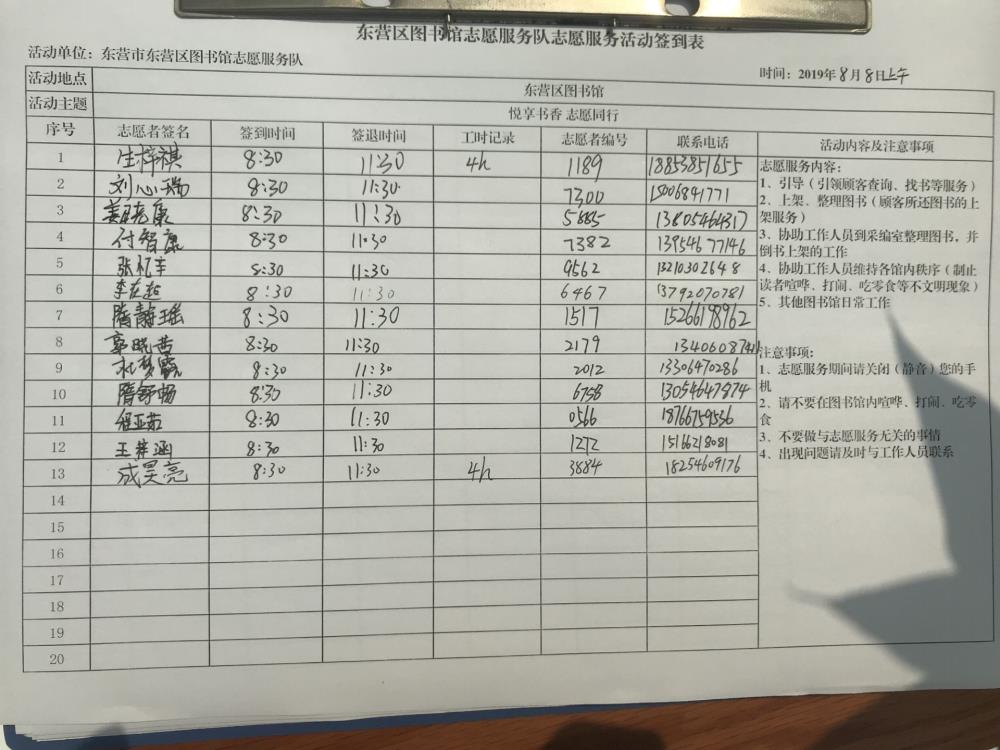 东营区图书馆志愿服务队志愿服务活动签到表
活动单位：东营市东营区图书馆志愿服务队
时间：2019年8月8日上午
活动地点 东营区图书馆
活动主题 悦享书香 志愿同行
序号 志愿者签名 签到时间 签退时间 工时记录 志愿者编号 联系电话 活动内容及注意事项
1 生梓祺 8:30 11:30 4h 1189 18853851655
2 刘心瑞 8:30 11:30 7300 15006841771
3 姜晓康 8:30 11:30 5885 13805464317
4 付智康 8:30 11:30 7382 13954677146
5 8:30 11:30 9562 13210302648
6 8:30 11:30 6467 13792070781
7 隋静瑶 8:30 11:30 1517 15266198962
8 郭晓茜 8:30 11:30 2179
9 8:30 11:30 2012 13306470286
10 隋舒畅 8:30 11:30 6758 13054647874
11 程亚茹 8:30 11:30 0566 18766759536
12 王梓涵 8:30 11:30 1272
13 成昊亮 8:30 11:30 4h 3884 18254609176
14
15
16
17
18
19
20
志愿服务内容：
1、引导（引领顾客查询、找书等服务）
2、上架、整理图书（顾客所还图书的上
架服务）
3、协助工作人员到采编室整理图书，并
倒书上架的工作
4、协助工作人员维持各馆内秩序（制止
读者喧哗、打闹、吃零食等不文明现象）
5、其他图书馆日常工作
注意事项：
1、志愿服务期间请关闭（静音）您的手
机
2、请不要在图书馆内喧哗、打闹、吃零
食
3、不要做与志愿服务无关的事情
4、出现问题请及时与工作人员联系